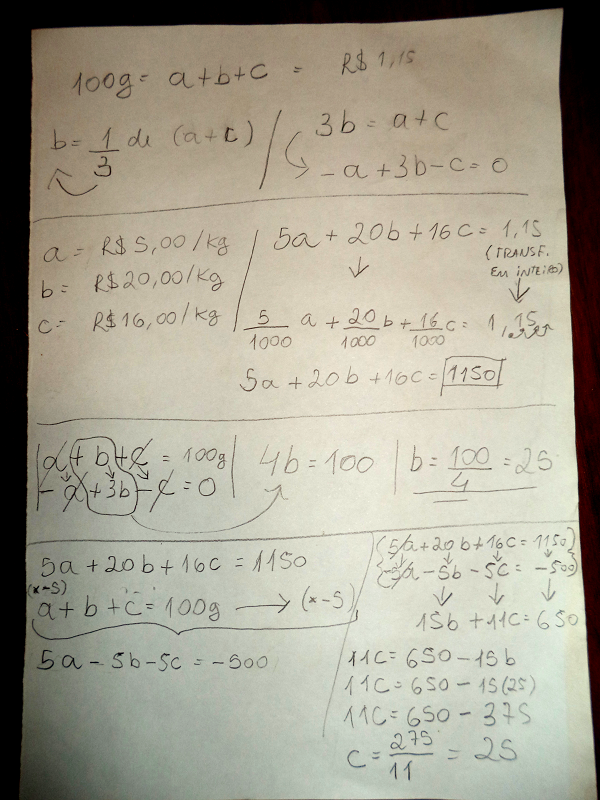 100g = a+b+c = R$ 1,15
b = 1/3 de (a+c)
3b = a+c
-a+3b-c=0
a = R$ 5,00/kg
b = R$ 20,00/kg
c = R$ 16,00/kg
5a + 20b + 16c = 1,15
(TRANSF.
EM INTEIRO)
5/1000 a + 20/1000 b + 16/1000 c = 1,15
5a + 20b + 16c = 1150
a + b + c = 100g
-a + 3b - c = 0
4b = 100
b = 100/4 = 25
5a + 20b + 16c = 1150
(x-5)
a + b + c = 100g → (x-5)
5a - 5b - 5c = -500
(5a+20b+16c=1150)
-5a - 5b - 5c = -500
15b + 11c = 650
11c = 650 - 15b
11c = 650 - 15(25)
11c = 650 - 375
c = 275/11 = 25